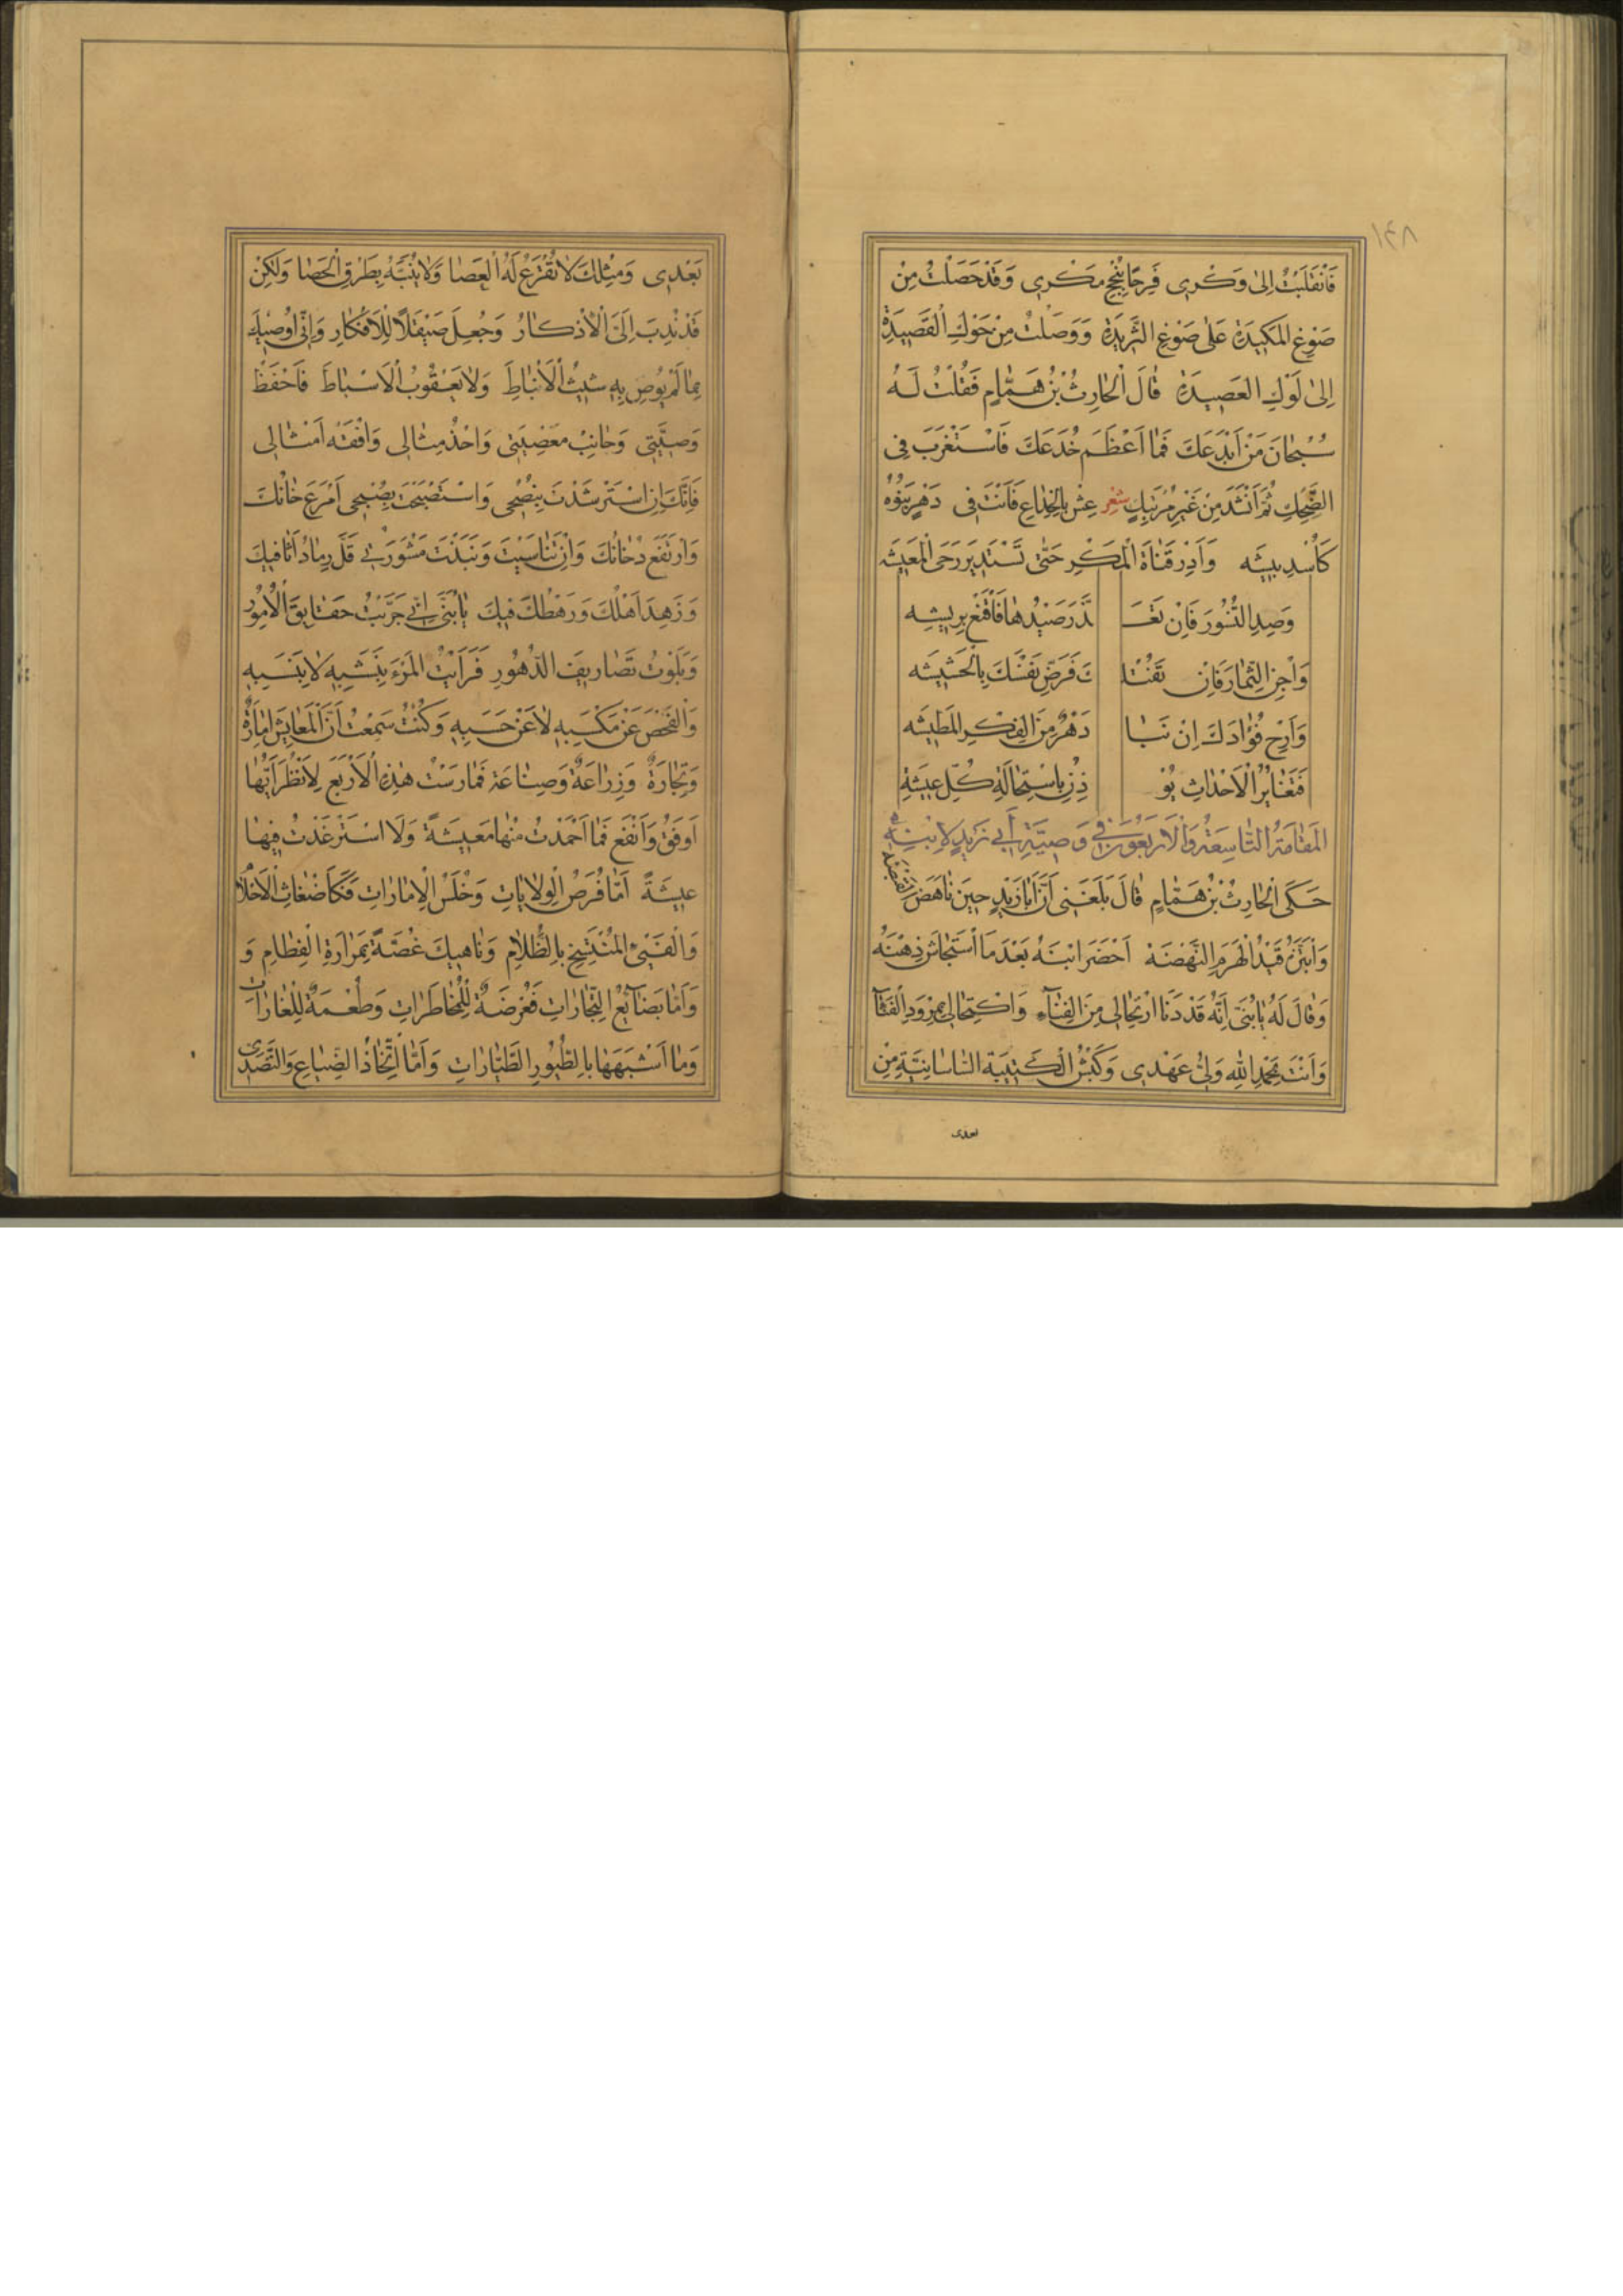 ١٤٨
فَانْقَلَبْتُ اِلىٰ وَكْرِى فَرِحًا بِنُجْحِ مَكْرِى وَقَدْ حَصَلْتُ مِنْ
صَوْغِ الْمَكِيدَةِ عَلىٰ صَوْغِ الثَّرِيدَةِ وَوَصَلْتُ مِنْ حَوْكِ الْقَصِيدَةِ
اِلىٰ لَوْكِ الْعَصِيدَةِ قٰالَ الْحٰارِثُ بْنُ هَمّٰامٍ فَقُلْتُ لَهُ
سُبْحٰانَ مَنْ اَبْدَعَكَ فَمٰا اَعْظَمَ خُدَعَكَ فَاسْتَغْرَبَ فِى
الضَّحِكِ ثُمَّ اَنْشَدَ مِنْ غَيْرِ مُرْتَبِكٍ شعر عِشْ بِالْخِدٰاعِ فَاَنْتَ فِى دَهْرٍ بَنُوْهُ
كَاُسْدِ بِيشَه وَاَدِرْ قَنٰاةَ الْمَكْرِ حَتّٰى تَسْتَدِيرَ رَحَى الْمَعِيشَه
وَصِدِ النُّسُورَ فَاِنْ تَعَـ ـذَّرَ صَيْدُهٰا فَاقْنَعْ بِرِيشِه
وَاجْنِ الثِّمٰارَ فَاِنْ تَفُتْـ ـكَ فَرَضِّ نَفْسَكَ بِالْحَشِيشَه
وَاَرِحْ فُؤٰادَكَ اِنْ نَبٰا دَهْرٌ مِنَ الْفِكْرِ الْمُطِيشَه
فَتَغٰايُرُ الْاَحْدٰاثِ يُؤْ ذِنُ بِاسْتِحٰالَةِ كُلِّ عِيشَةِ
الْمَقٰامَةُ التّٰاسِعَةُ وَالْاَرْبَعُونَ فِى وَصِيَّةِ اَبِى زَيْدٍ لِابْنِهِ
حَكَى الْحٰارِثُ بْنُ هَمّٰامٍ قٰالَ بَلَغَنِى اَنَّ اَبٰا زَيْدٍ حِينَ نٰاهَضَ الْقَبْضَةَ
وَابْتَزَّهُ قَيْدُ الْهَرَمِ النَّهْضَةَ اَحْضَرَ ابْنَهُ بَعْدَ مَا اسْتَجٰاشَ ذِهْنَهُ
وَقٰالَ لَهُ يٰا بُنَىَّ اِنَّهُ قَدْ دَنَا ارْتِحٰالِى مِنَ الْفِنٰآءِ وَاكْتِحٰالِى بِمِرْوَدِ الْفَنٰآءِ
وَاَنْتَ بِحَمْدِ اللّٰهِ وَلِىُّ عَهْدِى وَكَبْشُ الْكَتِيبَةِ السّٰاسٰانِيَّةِ مِنْ
بعدى
بَعْدِى وَمِثْلُكَ لٰا تُقْرَعُ لَهُ الْعَصٰا وَلٰا يُنَبَّهُ بِطَرْقِ الْحَصٰا وَلٰكِنْ
قَدْ نُدِبَ اِلَى الْاَذْكٰارُ وَجُعِلَ صَيْقَلًا لِلْاَفْكٰارِ وَاِنِّى اُوصِيكَ
بِمٰا لَمْ يُوصِ بِهِ شِيثُ الْاَنْبٰاطَ وَلٰا يَعْقُوبُ الْاَسْبٰاطَ فَاحْفَظْ
وَصِيَّتِى وَجٰانِبْ مَعْصِيَتِى وَاحْذُ مِثٰالِى وَافْقَهْ اَمْثٰالِى
فَاِنَّكَ اِنِ اسْتَرْشَدْتَ بِنُصْحِى وَاسْتَصْبَحْتَ بِصُبْحِى اَمْرَعَ خٰانُكَ
وَارْتَفَعَ دُخٰانُكَ وَاِنْ تَنٰاسَيْتَ وَنَبَذْتَ مَشْوَرَتِى قَلَّ رَمٰادُ اَثٰافِيكَ
وَزَهِدَ اَهْلُكَ وَرَهْطُكَ فِيكَ يٰا بُنَىَّ اِنِّى جَرَّبْتُ حَقٰايِقَ الْاُمُورِ
وَبَلَوْتُ تَصٰارِيفَ الدُّهُورِ فَرَاَيْتُ الْمَرْءَ بِنَشَبِهِ لٰا بِنَسَبِهِ
وَالْفَحْصَ عَنْ مَكْسَبِهِ لٰا عَنْ حَسَبِهِ وَكُنْتُ سَمِعْتُ اَنَّ الْمَعٰايِشَ اِمٰارَةٌ
وَتِجٰارَةٌ وَزِرٰاعَةٌ وَصِنٰاعَة فَمٰارَسْتُ هٰذِهِ الْاَرْبَعَ لِاَنْظُرَ اَيُّهٰا
اَوفَقُ وَاَنْفَع فَمٰا اَحْمَدْتُ مِنْهٰا مَعِيشَةً وَلَا اسْتَرْغَدْتُ فِيهٰا
عِيشَةً اَمّٰا فُرَصُ الْوِلٰايٰاتِ وَخُلَسُ الْاِمٰارٰاتِ فَكَاَضْغٰاثِ الْاَحْلٰامِ
وَالْفَىْءِ الْمُنْتَسِخِ بِالظَّلٰامِ وَنٰاهِيكَ غُصَّةً بِمَرٰارَةِ الْفِطٰامِ وَ
وَاَمّٰا بَضٰآئِعُ التِّجٰارٰاتِ فَعُرْضَةٌ لِلْمُخٰاطَرٰاتِ وَطُعْمَةٌ لِلْغٰارٰاتِ
وَمٰا اَشْبَهَهٰا بِالطُّيُورِ الطَّيّٰارٰاتِ وَاَمَّا اتِّخٰاذُ الضِّيٰاعِ وَالتَّصَدِّى